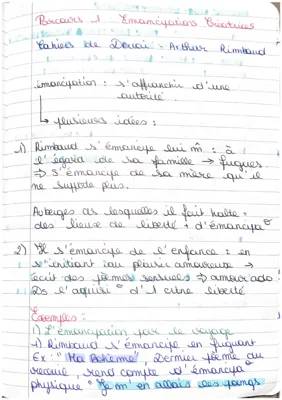 Parcours 1 Emancipations Créatrices
Cahiers de Douai - Arthur Rimbaud
émancipation : s'affranchir d'une
autorité.
↳ plusieurs idées :
1) Rimbaud s'émancipe lui m̂ : à
l'égard de sa famille → fugues
⇒ s'émancipe de sa mère qu'il
ne supporte plus.
Auberges ds lesquelles il fait halte =
des lieux de liberté + d'émancipa°
2) Il s'émancipe de l'enfance : en
s'initiant au plaisir amoureux →
écrit des poèmes sensuels ⇒ amour ado!
Ds le aquiri° d'1 utre liberté
Exemples :
1) L'émancipation par le voyage
→ Rimbaud s'émancipe en fuguant
Ex : "Ma Bohème", dernier poème du
recueil, rend compte d'émancipa°
physique "Je m'en allais, les poings